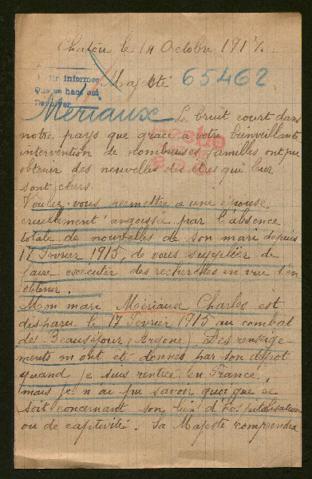 Chatou le 14 Octobre 1917.
Majesté 65462
Par informes
Que se hace su
Meriaux Le bruit court dans
notre pays que grace a votre bienveillante
intervention de nombreuses familles ont pu
obtenir des nouvelles des êtres qui leur
sont chers.
Voulez-vous permettre a une épouse
cruellement angoissée par l'absence
totale de nouvelles de son mari depuis
17 Fevrier 1915, de vous supplier de
faire executer des recherches en vue d'en
obtenir.
Mon mari Mériaux Charles est
disparu le 17 Fevrier 1915 au combat
de Beauséjour (Argone) Des renseigne
ments m'ont été donnés par son dépot
quand je suis rentrée en France,
mais je n'ai pu savoir quoi que ce
soit concernant son lieu d'hospitalisation
ou de captivité. Sa Majesté comprendra